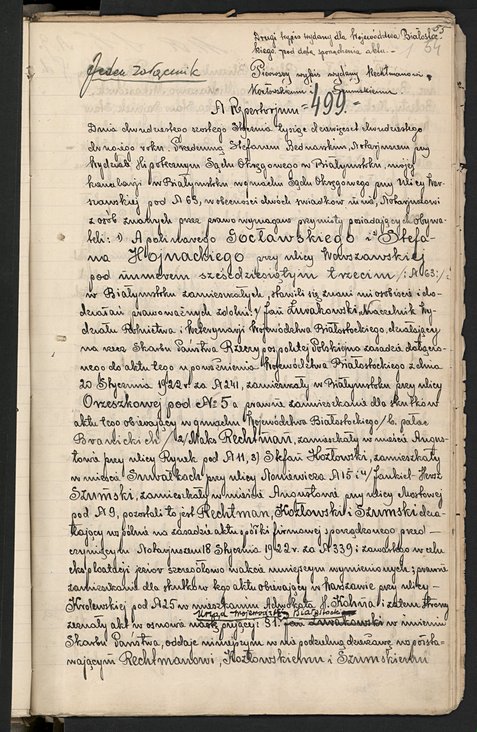 Drugi wypis wydany dla Województwa Białostoc-
kiego pod datą sporządzenia aktu. –
55
1 54
Jeden załącznik
Pierwszy wypis wydany Rechtmanowi,
Kozłowskiemu i Szumskiemu
A Repertorjum – 499. –
Dnia dwudziestego szóstego Stycznia tysiąc dziewięćset dwudziestego
drugiego roku. Przedemną Stefanem Bednarskim, Notarjuszem przy
Wydziale Hipotecznym Sądu Okręgowego w Białymstoku, w mojej
kancelarji w Białymstoku w gmachu Sądu Okręgowego przy Ulicy War-
szawskiej pod № 63, w obecności dwóch świadków mi, Notarjuszowi
z osób znanych przez prawo wymagane przymioty posiadających obywa-
teli: 1) Apolinarego Gocławskiego i 2) Stefa-
na Hojnackiego przy ulicy Warszawskiej
pod numerem sześćdziesiątym trzecim /: № 63:/:
w Białymstoku zamieszkałych, stawili się znani mi osobiście i do
działań prawoważnych zdolni: 1/ Jan Lwakowski, Naczelnik Wy-
działu Rolnictwa i Weterynarji Województwa Białostockiego, działający
na rzecz Skarbu Państwa Rzeczypospolitej Polskiej na zasadzie dołączo-
nego do aktu tego upoważnienia Województwa Białostockiego z dnia
20 Stycznia 1922 r. za № 241, zamieszkały w Białymstoku przy ulicy
Orzeszkowej pod № 5 a prawne zamieszkanie dla skutków
aktu tego obierający w gmachu Województwa Białostockiego /b. pałac
Branickich/ 2/ Maks Rechtman, zamieszkały w mieście Augus-
towie przy ulicy Rynek pod № 11, 3) Stefan Kozłowski, zamieszkały
w mieście Suwałkach przy ulicy Noniewicza № 15 i 4/ Jankiel-Hersz
Szumski, zamieszkały w mieście Augustowie przy ulicy Mostowej
pod № 9, pozostali to jest Rechtman, Kozłowski i Szumski dzia-
łający wspólnie na zasadzie aktu spółki firmowej sporządzonego przed
czyniącym Notarjuszem 18 Stycznia 1922 r. za № 339 i zawartej w celu
eksploatacji jezior szczegółowo w akcie niniejszym wymienionych; prawne
zamieszkanie dla skutków tego aktu obierający w Warszawie przy ulicy
Królewskiej pod № 25 w mieszkaniu Adwokata J. Kahna i zatem strony
Urząd Wojewódzki Białostocki
zeznały akt w osnowie następującej: § 1. Jan Lwakowski w imieniu
Skarbu Państwa, oddaje niniejszym w niepodzielną dzierżawę na pozosta-
wającym Rechtmanowi, Kozłowskiemu i Szumskiemu